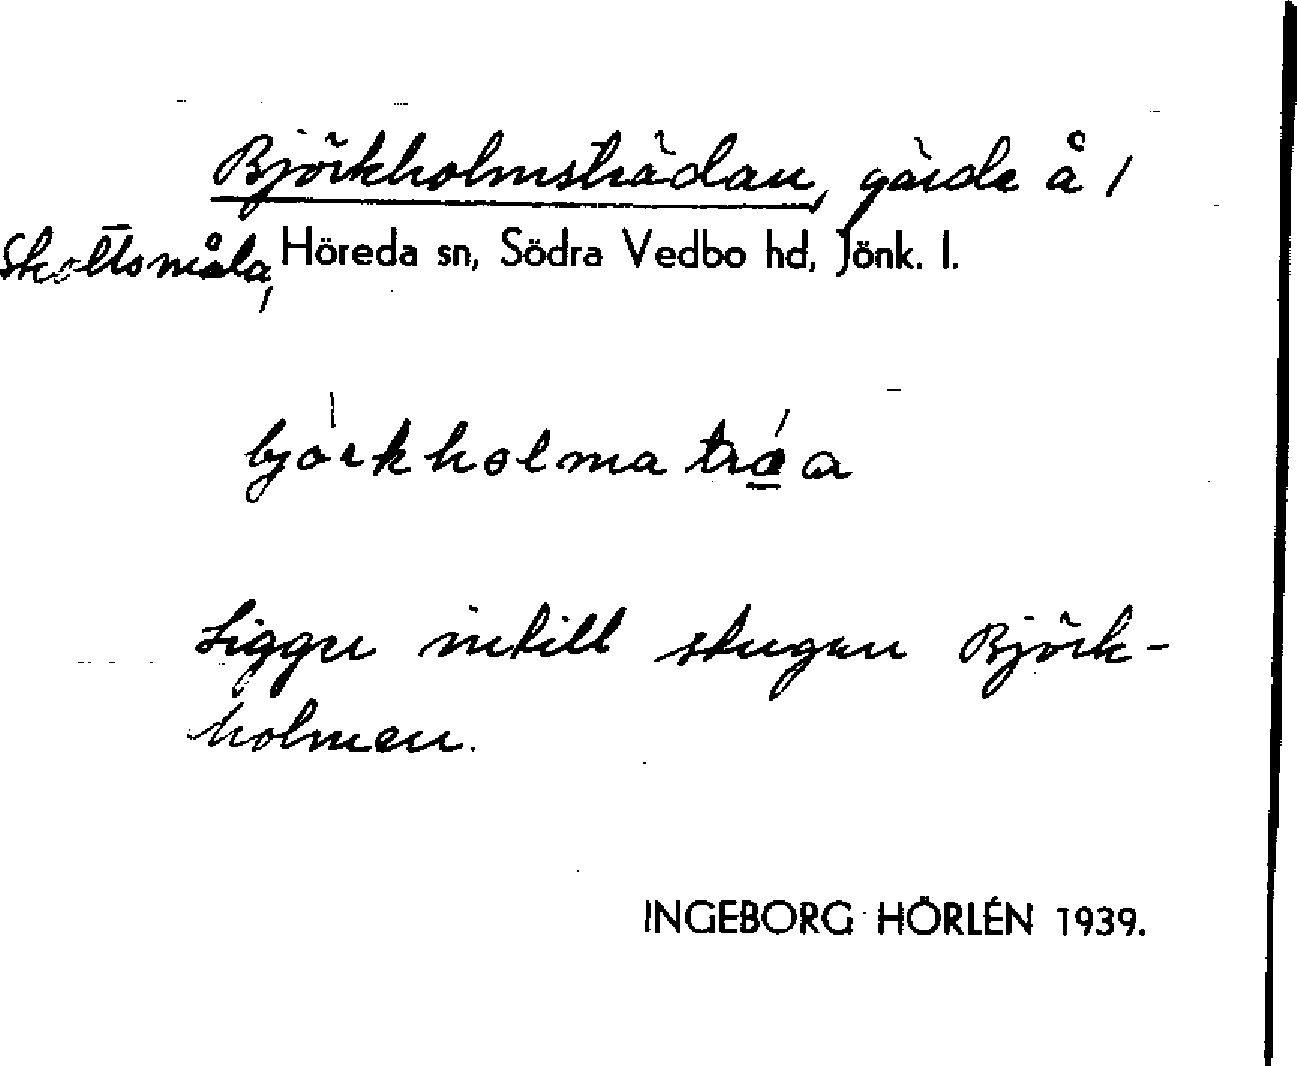 Björkholmsträdan, gärde å /
Skoltsmåla, Höreda sn, Södra Vedbo hd, Jönk. l.
björkholma träa
Ligger intill stugan Björk-
holmen.
INGEBORG HÖRLÉN 1939.